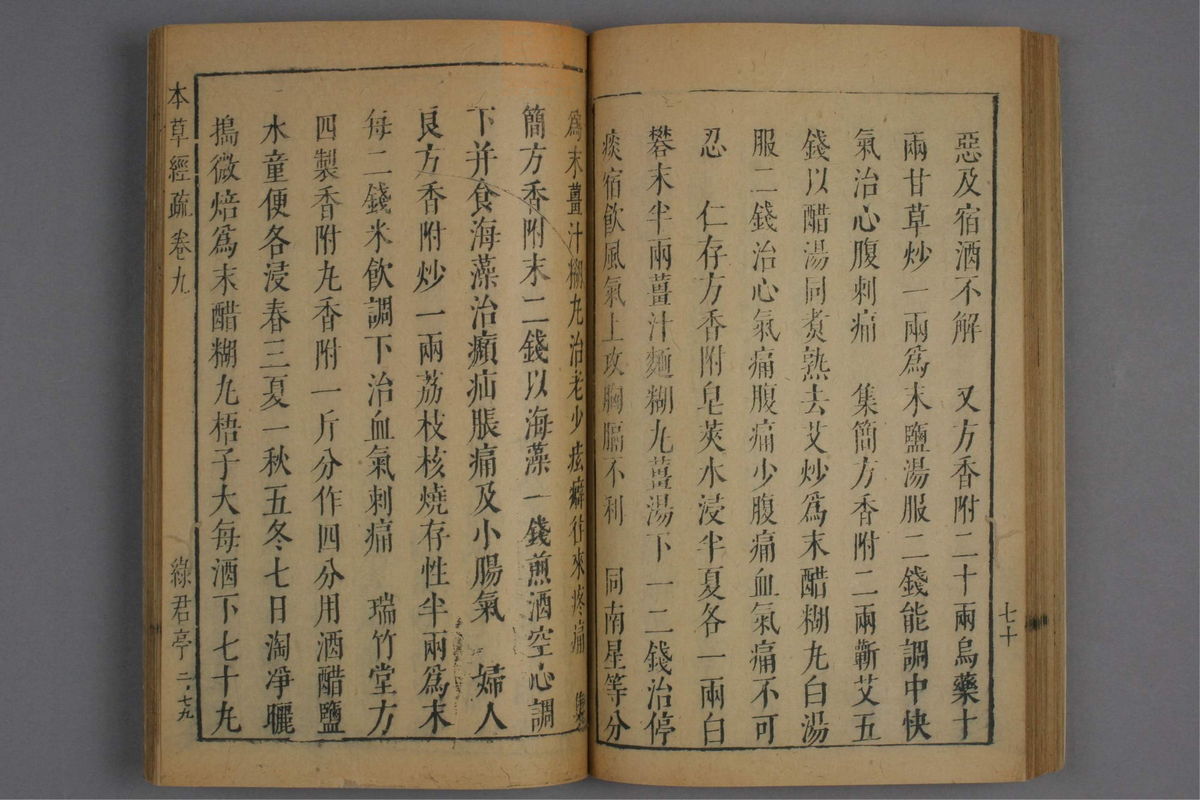 惡及宿酒不解　又方香附二十兩烏藥十
兩甘草炒一兩爲末鹽湯服二錢能調中快
氣治心腹刺痛　集簡方香附二兩蘄艾五
錢以醋湯同煑熟去艾炒爲末醋糊丸白湯
服二錢治心氣痛腹痛少腹痛血氣痛不可
忍　仁存方香附皂莢水浸半夏各一兩白
礬末半兩薑汁麵糊丸薑湯下一二錢治停
痰宿飲風氣上攻胸膈不利　同南星等分
七十
爲末薑汁糊丸治老少痃癖往來疼痛　集
簡方香附末二錢以海藻一錢煎酒空心調
下幷食海藻治癩疝脹痛及小腸氣　婦人
良方香附炒一兩荔枝核燒存性半兩爲末
每二錢米飲調下治血氣刺痛　瑞竹堂方
四製香附丸香附一斤分作四分用酒醋鹽
水童便各浸春三夏一秋五冬七日淘凈曬
搗微焙爲末醋糊丸梧子大每酒下七十丸
本草經疏 卷九　綠君亭 二・七九